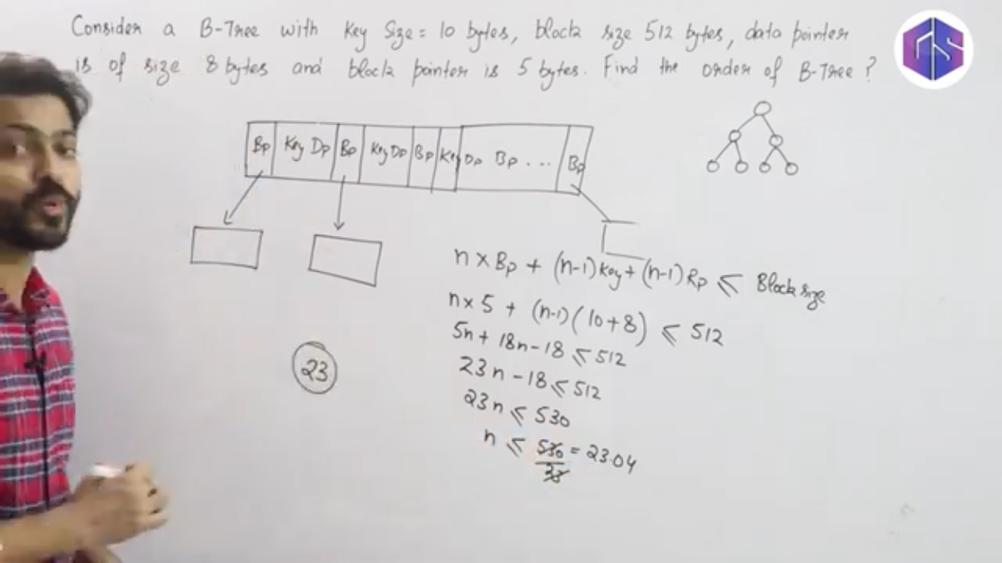 Consider a B-Tree with Key Size = 10 bytes, block size 512 bytes, data pointer
is of size 8 bytes and block pointer is 5 bytes. Find the order of B-Tree ?
Bp Key Dp Bp Key Dp Bp Key Dp Bp ... Bp
n × Bp + (n-1) Key + (n-1) Rp ≤ Block size
n × 5 + (n-1) (10+8) ≤ 512
5n + 18n - 18 ≤ 512
23n - 18 ≤ 512
23n ≤ 530
n ≤ 530/23 = 23.04
23